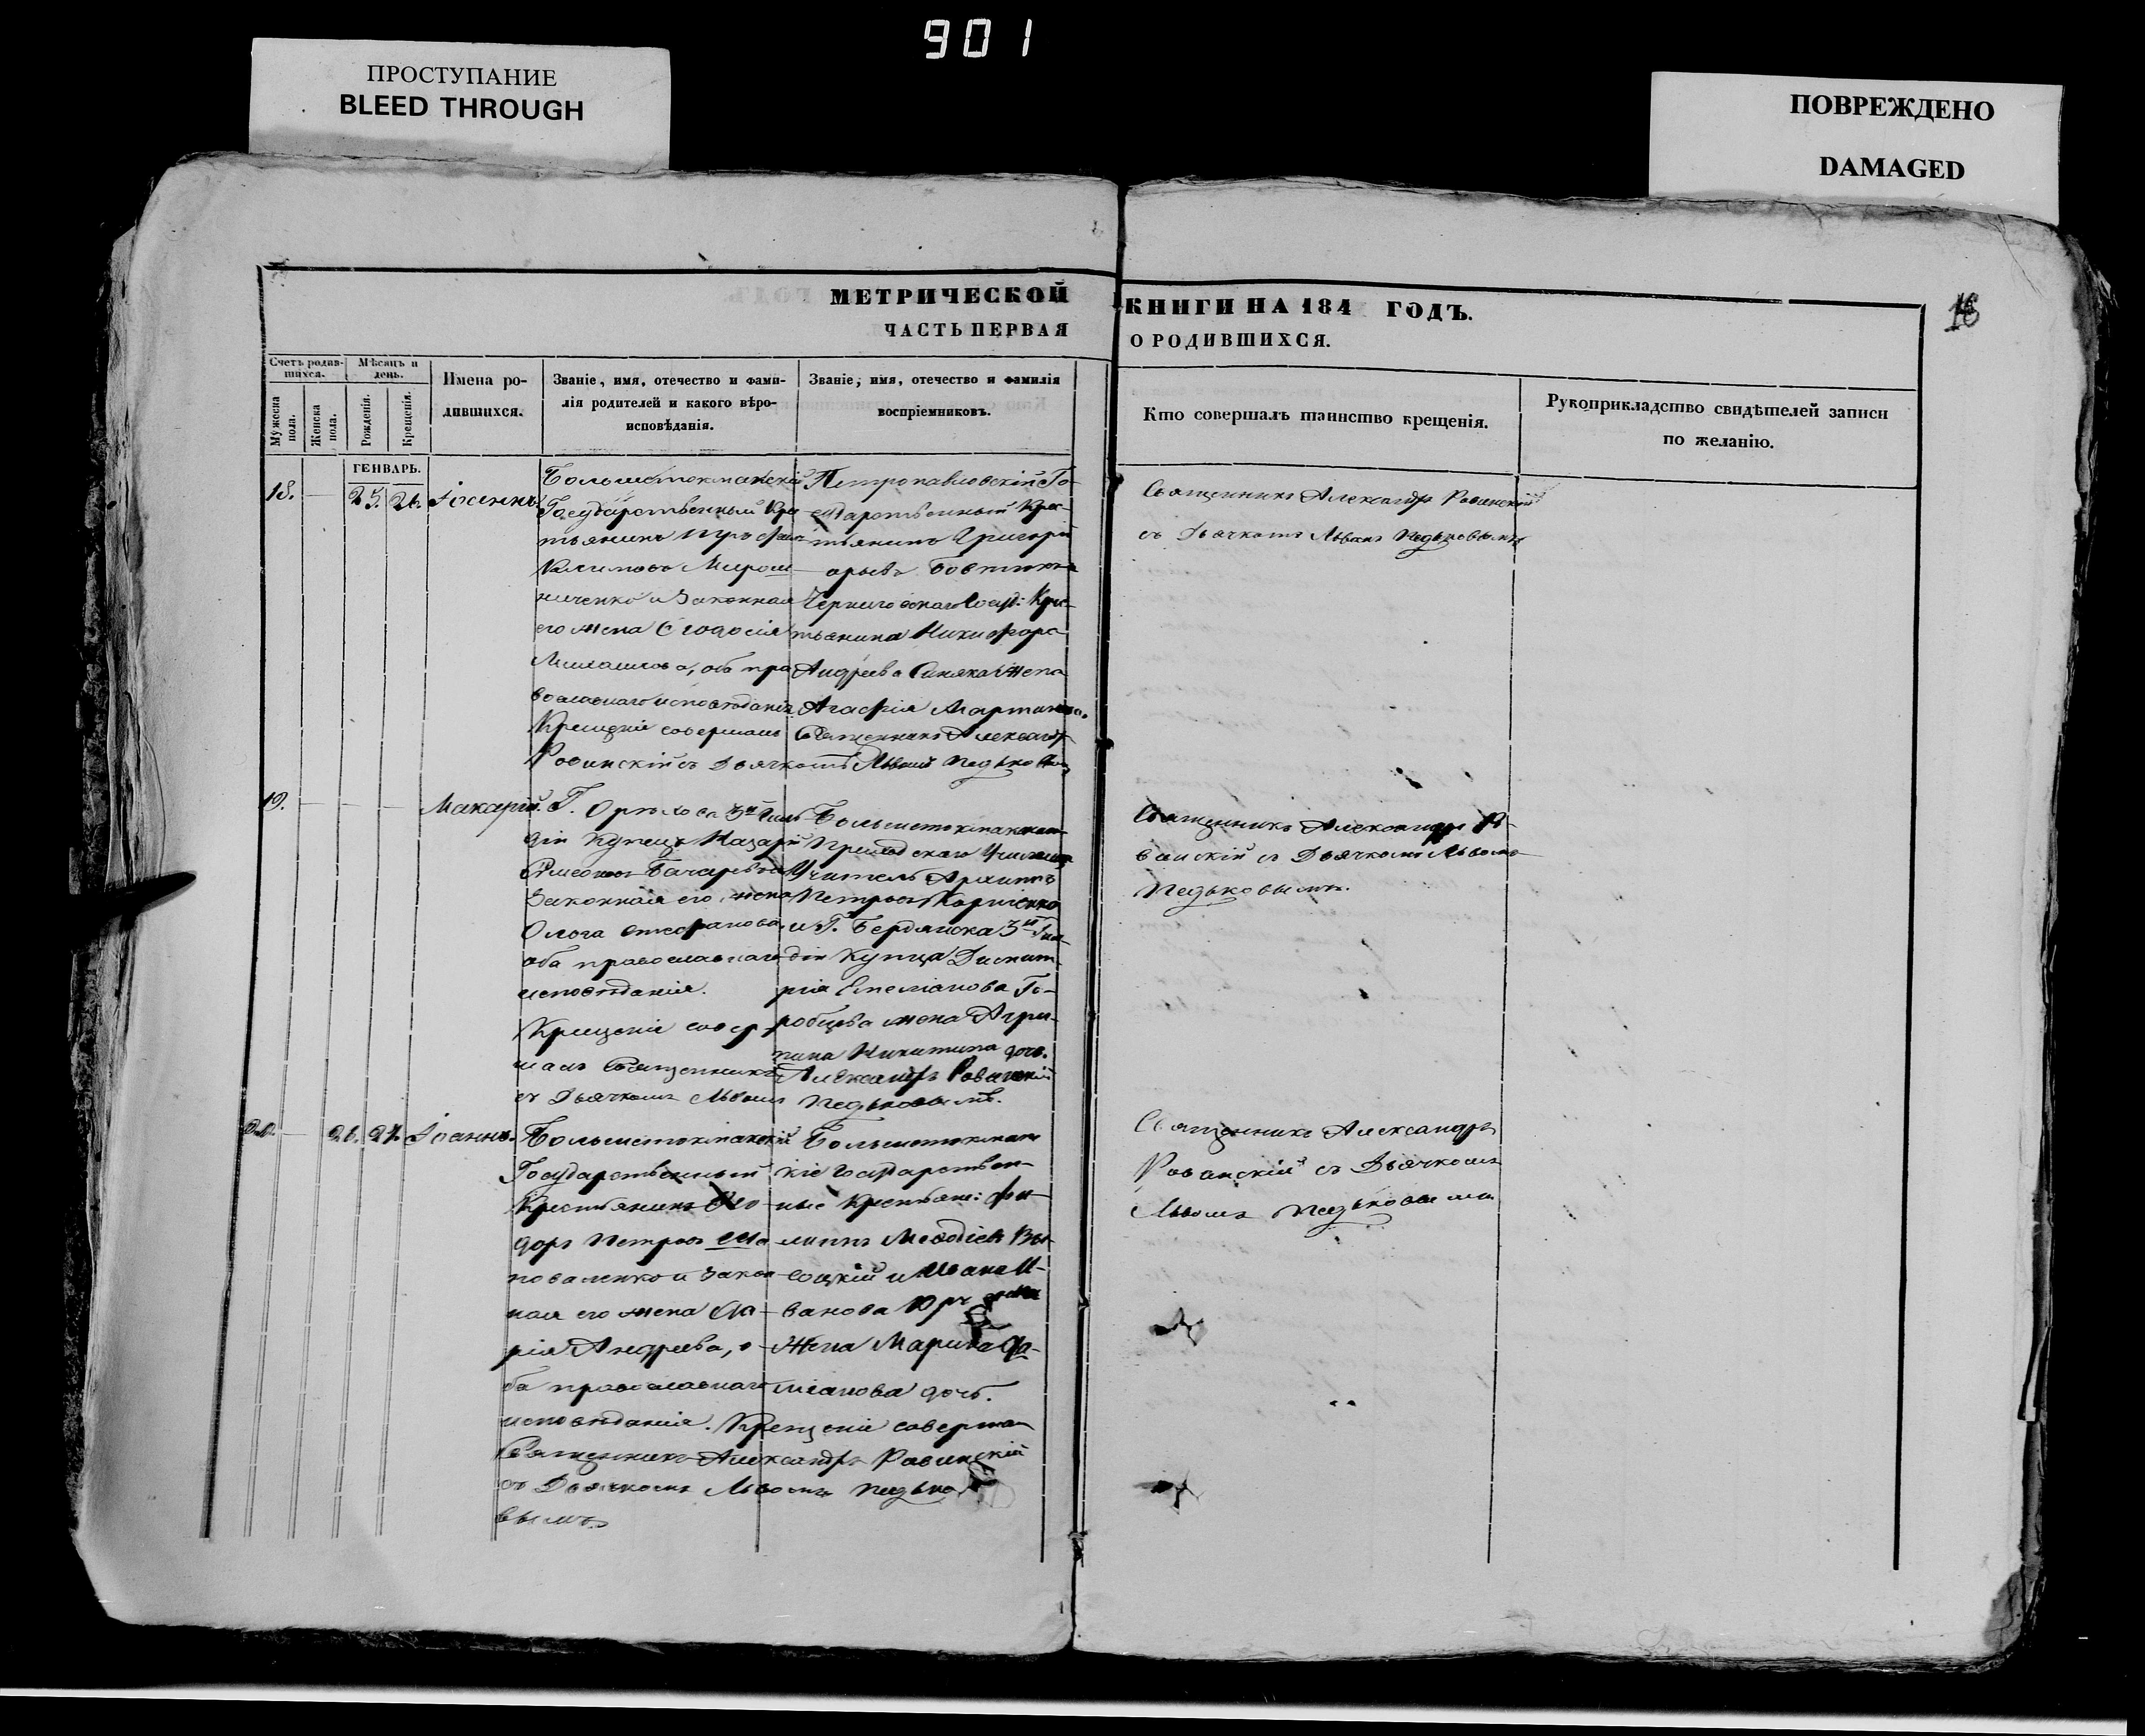 901
ПРОСТУПАНИЕ
BLEED THROUGH
ПОВРЕЖДЕНО
DAMAGED
МЕТРИЧЕСКОЙ
КНИГИ НА 184 ГОДЪ.
ЧАСТЬ ПЕРВАЯ
О РОДИВШИХСЯ.
Счетъ родив-
шихся.
Мѣсяцъ и
день.
Мужеска
пола.
Женска
пола.
Рожденія.
Крещенія.
Имена ро-
дившихся.
Званіе, имя, отечество и фами-
лія родителей и какого вѣро-
исповѣданія.
Званіе, имя, отечество и фамилія
воспріемниковъ.
Кто совершалъ таинство крещенія.
Рукоприкладство свидѣтелей записи
по желанію.
ГЕНВАРЬ.
18. 25. 26. Іоаннъ
Большетокмакскій
Государственный Кре
тьянинъ
Климовъ Мирош
ниченко и Законная
его жена Ѳеодосія
об пра
вославнаго исповѣданія.
Крещеніе совершалъ Священникъ Александръ
Рованскій съ Дьячкомъ Львомъ
Петропавловскій Го-
сударственный Крес-
тьянинъ Григорій
Черниговскаго Госуд: Крес-
тьянина Никифора
Андреева жена
Агафія Мартинова.
Священникъ Александръ Рованскій
съ Дьячкомъ Львомъ Педьковымъ
19. Макарій.
Г. Орѣхова 3й Гиль
діи Купецъ Назарій
Законная его жена
Олога Стефанова,
оба православнаго
исповѣданія.
Крещеніе совер-
шалъ Священникъ Александръ Рованскій
съ Дьячкомъ Львомъ Педьковымъ.
Большетокмакскаго
Приходскаго Училища
Учитель Архипъ
Петровъ Корниенко
и Г. Бердянска 3й Гил-
діи Купца Димит-
рія Емеліанова Го-
робцева жена Агри-
пина Никитина дочь.
Священникъ Александръ Ро-
ванскій съ Дьячкомъ Львомъ
Педьковымъ.
20. 26. 27. Іоаннъ.
Большетокмакскій
Государственный
Крестьянинъ Ѳео
доръ Петровъ Ша
поваленко и Закон
ная его жена Да-
рія Андреева, о-
ба православнаго
исповѣданія. Крещеніе совершалъ
Священникъ Александръ Рованскій
съ Дьячкомъ Львомъ Педько
вымъ
Большетокмакс
кіе Государствен-
ные Крестьяне: Фи-
липпъ Меѳодіевъ Вы-
соцкій и Ивана И-
ванова
Жена Марина Да-
міанова дочь.
Священникъ Александръ
Рованскій съ Дьячкомъ
Львомъ Педьковымъ